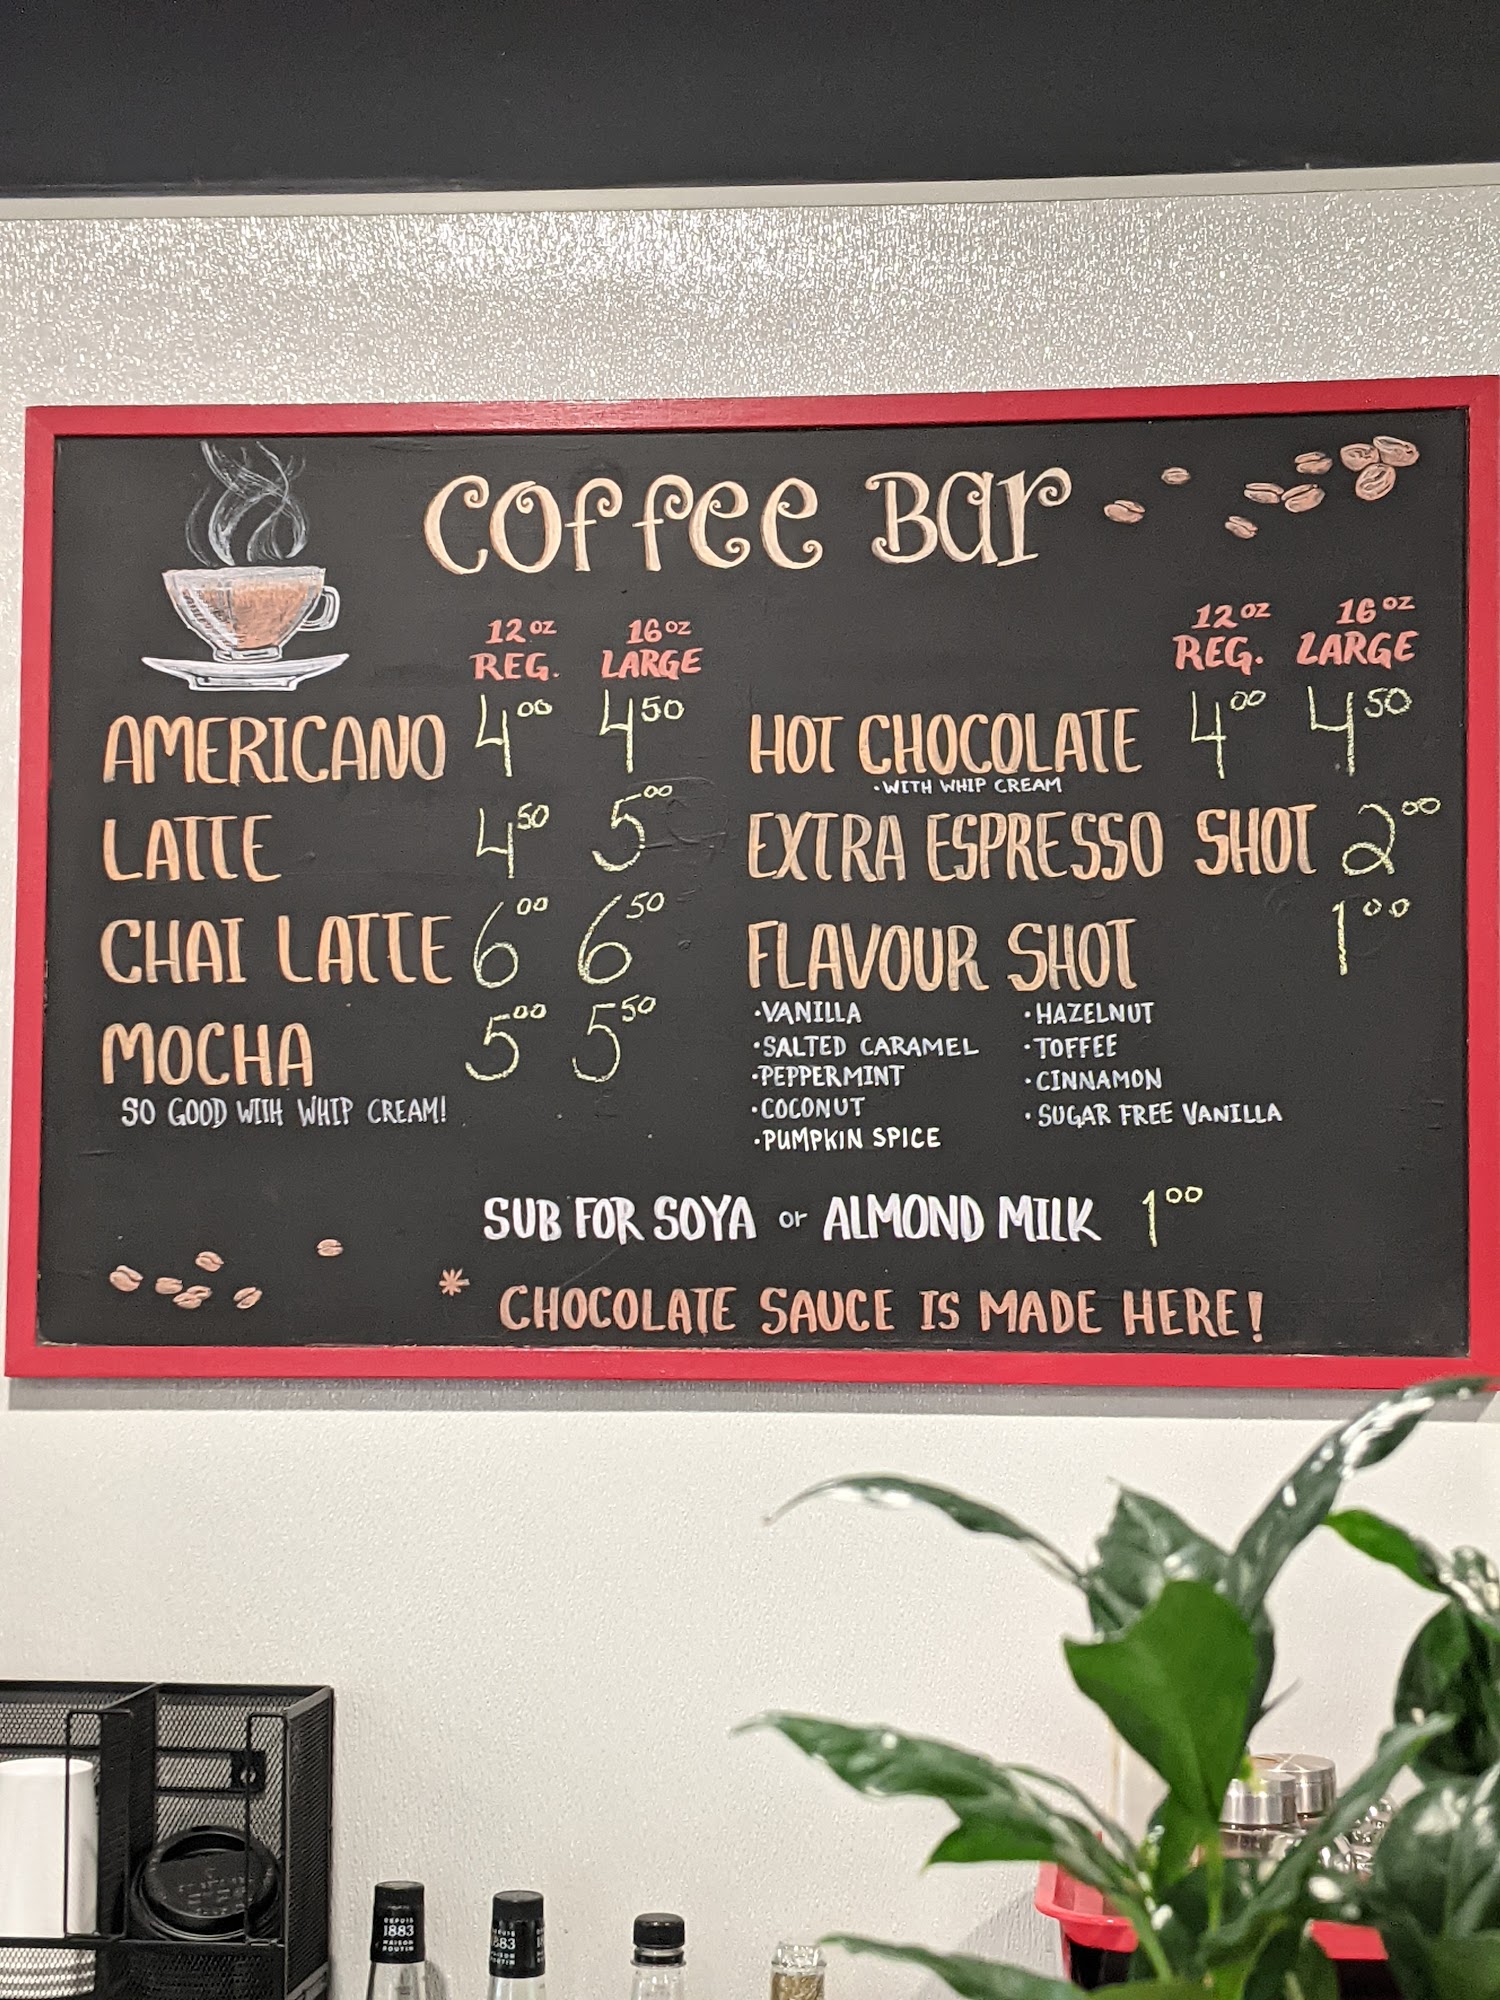 Coffee Bar
12 oz 16 oz
REG. LARGE
AMERICANO 4.00 4.50
LATTE 4.50 5.00
CHAI LATTE 6.00 6.50
MOCHA 5.00 5.50
SO GOOD WITH WHIP CREAM!
12 oz 16 oz
REG. LARGE
HOT CHOCOLATE 4.00 4.50
·WITH WHIP CREAM
EXTRA ESPRESSO SHOT 2.00
FLAVOUR SHOT 1.00
·VANILLA
·SALTED CARAMEL
·PEPPERMINT
·COCONUT
·PUMPKIN SPICE
·HAZELNUT
·TOFFEE
·CINNAMON
·SUGAR FREE VANILLA
SUB FOR SOYA or ALMOND MILK 1.00
* CHOCOLATE SAUCE IS MADE HERE!
DEPUIS
1883
MAISON
ROUTIN